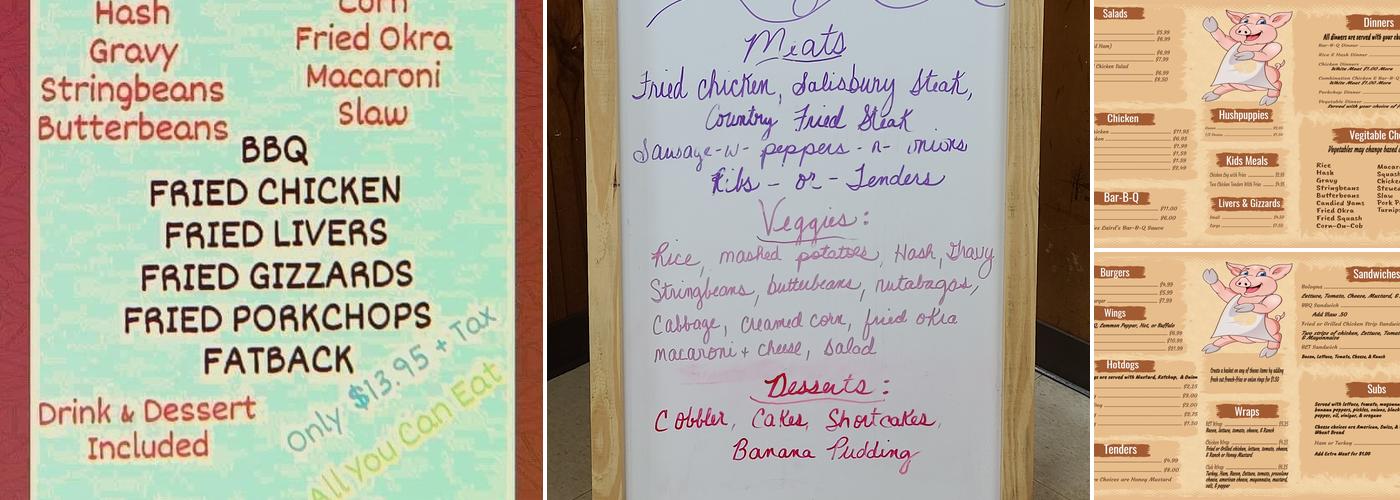 Hash
Gravy
Stringbeans
Butterbeans
Corn
Fried Okra
Macaroni
Slaw
BBQ
FRIED CHICKEN
FRIED LIVERS
FRIED GIZZARDS
FRIED PORKCHOPS
FATBACK
Drink & Dessert
Included
Only $13.95 + Tax
All You Can Eat
Meats
Fried chicken, Salisbury Steak,
Country Fried Steak
Sausage -w- peppers -n- onions
Ribs - or - Tenders
Veggies:
Rice, mashed potatoes, Hash, Gravy
Stringbeans, butterbeans, rutabagas,
Cabbage, creamed corn, fried okra
macaroni + cheese, salad
Desserts:
Cobbler, Cakes, Shortcakes,
Banana Pudding
Salads
$5.99
$6.99
$6.99
$7.99
Chicken Salad
$6.99
Chicken
$11.95
$6.99
$1.99
$1.59
$1.59
$2.49
Bar-B-Q
$11.00
$6.00
Laird's Bar-B-Q Sauce
Hushpuppies
Kids Meals
Livers & Gizzards
Dinners
All dinners are served with your
Bar-B-Q Dinner
Rice & Hash Dinner
Chicken Dinner
White Meat $1.00 More
Combination Chicken & Bar-B-Q
White Meat $1.00 More
Porkchop Dinner
Vegetable Dinner
Vegitable
Vegetables may change based
Rice
Hash
Gravy
Stringbeans
Butterbeans
Candied Yams
Fried Okra
Fried Squash
Corn-On-Cob
Burgers
$4.99
$5.99
$7.99
Wings
Lemon Pepper, Hot, or Buffalo
$6.99
$10.99
Hotdogs
are served with Mustard, Ketchup, & Onion
$2.25
$2.75
$1.50
Tenders
$4.99
$8.00
Choices are Honey Mustard
Create a basket on any of these items by adding
fresh cut french-fries or onion rings for $1.50
Wraps
BLT Wrap
Bacon, lettuce, tomato, cheese, & Ranch
Chicken Wrap
Fried or Grilled chicken, lettuce, tomato, cheese,
& Ranch or Honey Mustard
Club Wrap
Turkey, Ham, Bacon, lettuce, tomato, provolone
cheese, american cheese, mayonnaise, mustard,
salt, & pepper
Sandwiches
Bologna
Lettuce, Tomato, Cheese, Mustard,
BBQ Sandwich
Add Slaw .50
Fried or Grilled Chicken Strip
Two strips of chicken, Lettuce,
& Mayonnaise
BLT Sandwich
Bacon, Lettuce, Tomato, Cheese, & Ranch
Subs
Served with lettuce, tomato,
banana peppers, pickles, onions,
pepper, oil, vinegar, & oregano
Cheese choices are American, Swiss,
Wheat Bread
Ham or Turkey
Add Extra Meat for $1.00